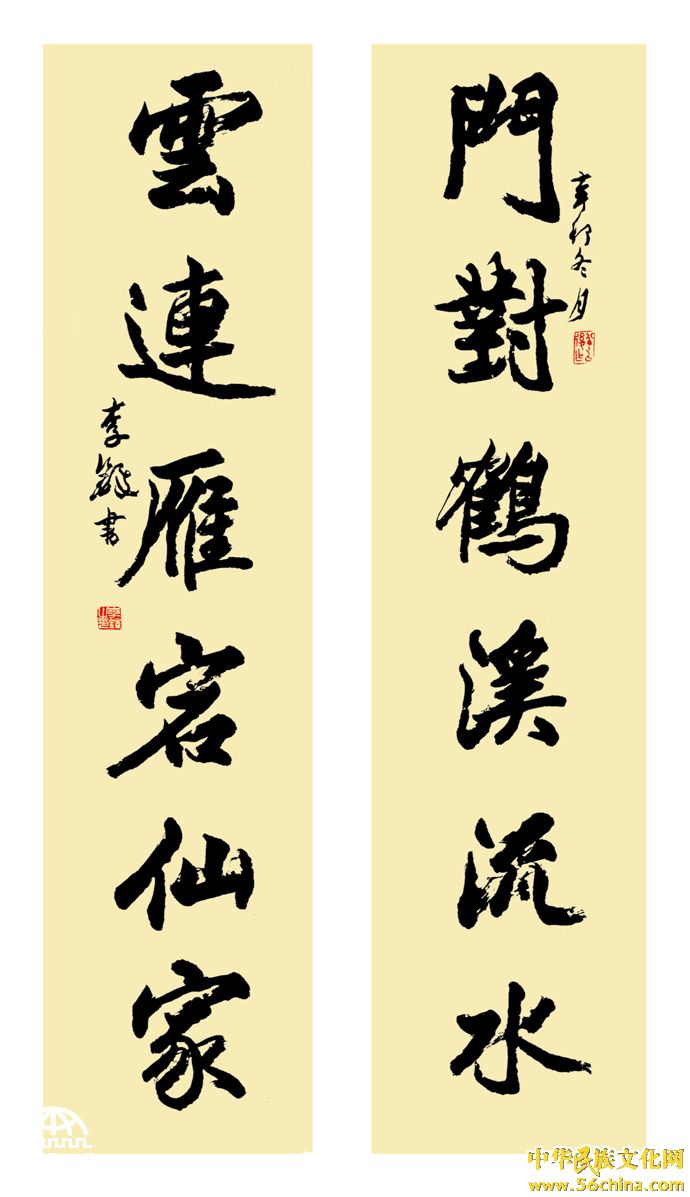 辛卯冬月
門對鶴溪流水
雲連雁宕仙家
李書
中华民族文化网
www.56china.com